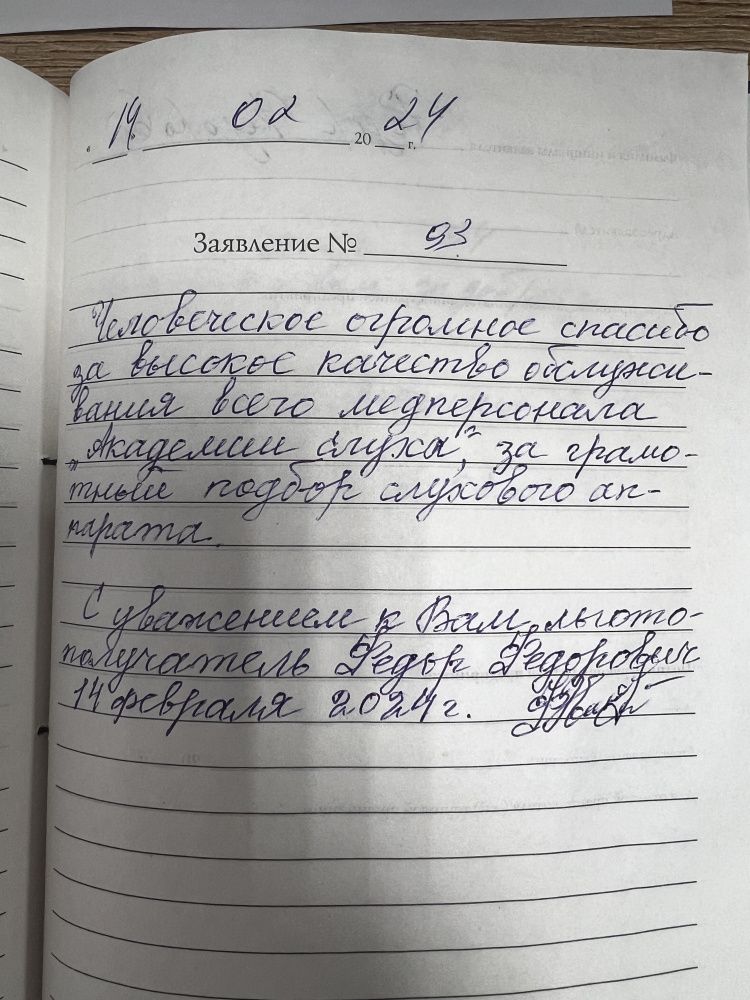 « 14. 02 2024 г.
Заявление № 93.
Человеческое огромное спасибо
за высокое качество обслужи-
вания всего медперсонала
„Академии слуха", за грамо-
тный подбор слухового ап-
парата.
С уважением к Вам, льгото-
получатель Фёдор Федорович
14 февраля 2024 г.